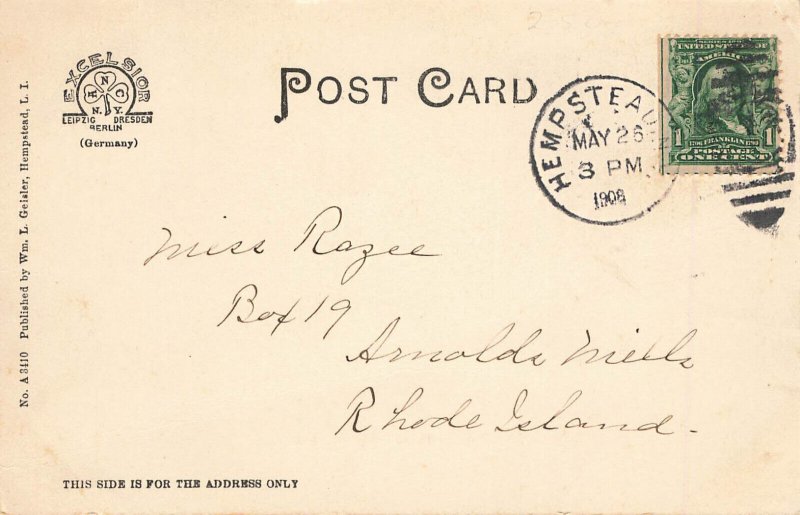 EXCELSIOR
A N C
N.Y.
LEIPZIG DRESDEN
BERLIN
(Germany)
POST CARD
HEMPSTEAD
MAY 26
3 PM
1908
UNITED STATES OF
AMERICA
1 1
1706 FRANKLIN 1790
POSTAGE
ONE CENT
Miss Razee
Box 19
Arnolds Mills
Rhode Island-
THIS SIDE IS FOR THE ADDRESS ONLY
No. A 3410 Published by Wm. L. Geisler, Hempstead, L. I.